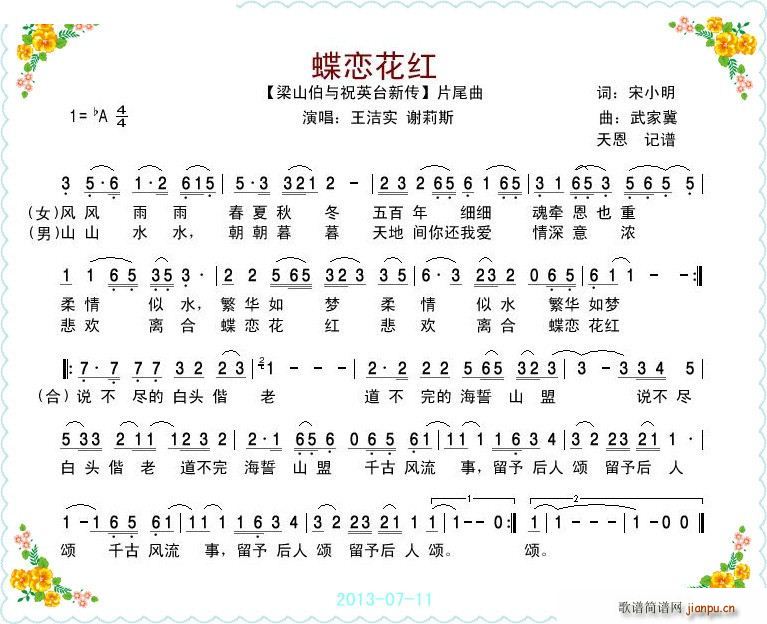 蝶恋花红
【梁山伯与祝英台新传】片尾曲 词：宋小明
1= ♭A 4/4 演唱：王洁实 谢莉斯 曲：武家冀
天恩 记谱
3 5·6 1·2 615 | 5·3 321 2 - | 2 3 2 65 6 1 65 | 3 1 65 3 5 6 5 5 |
(女)风 风 雨 雨 春 夏 秋 冬 五百 年 细细 魂牵 恩 也 重
(男)山 山 水 水， 朝 朝 暮 暮 天地 间你还我爱 情深 意 浓
1 1 65 35 3· | 2 2 565 323 3 | 6· 3 232 2 065 | 611 - - :||
柔 情 似 水， 繁 华 如 梦 柔 情 似 水 繁华 如梦
悲 欢 离 合 蝶 恋 花 红 悲 欢 离 合 蝶恋 花红
||: 7 7· 7 7 3 2 2 3 | 1 - - | 2· 2 2 2 565 323 | 3 - 3 3 4 5 |
(合)说 不 尽的 白头 偕 老 道 不 完的 海誓 山 盟 说不 尽
5 33 211 123 2 | 2·1 656 065 61 | 11 1 634 | 32 23 21 1 |
白 头 偕 老 道不完 海誓 山 盟 千古 风流 事，留予 后人 颂 留予后 人
1 - 165 61 | 11 1 634 | 32 23 21 1 1 | 1 - - 0 :|| 1 | 1 - - - | 1 - - - ||
颂 千古 风流 事，留予 后人 颂 留予后 人 颂。 颂。
2013-07-11
歌谱简谱网
jianpu.cn